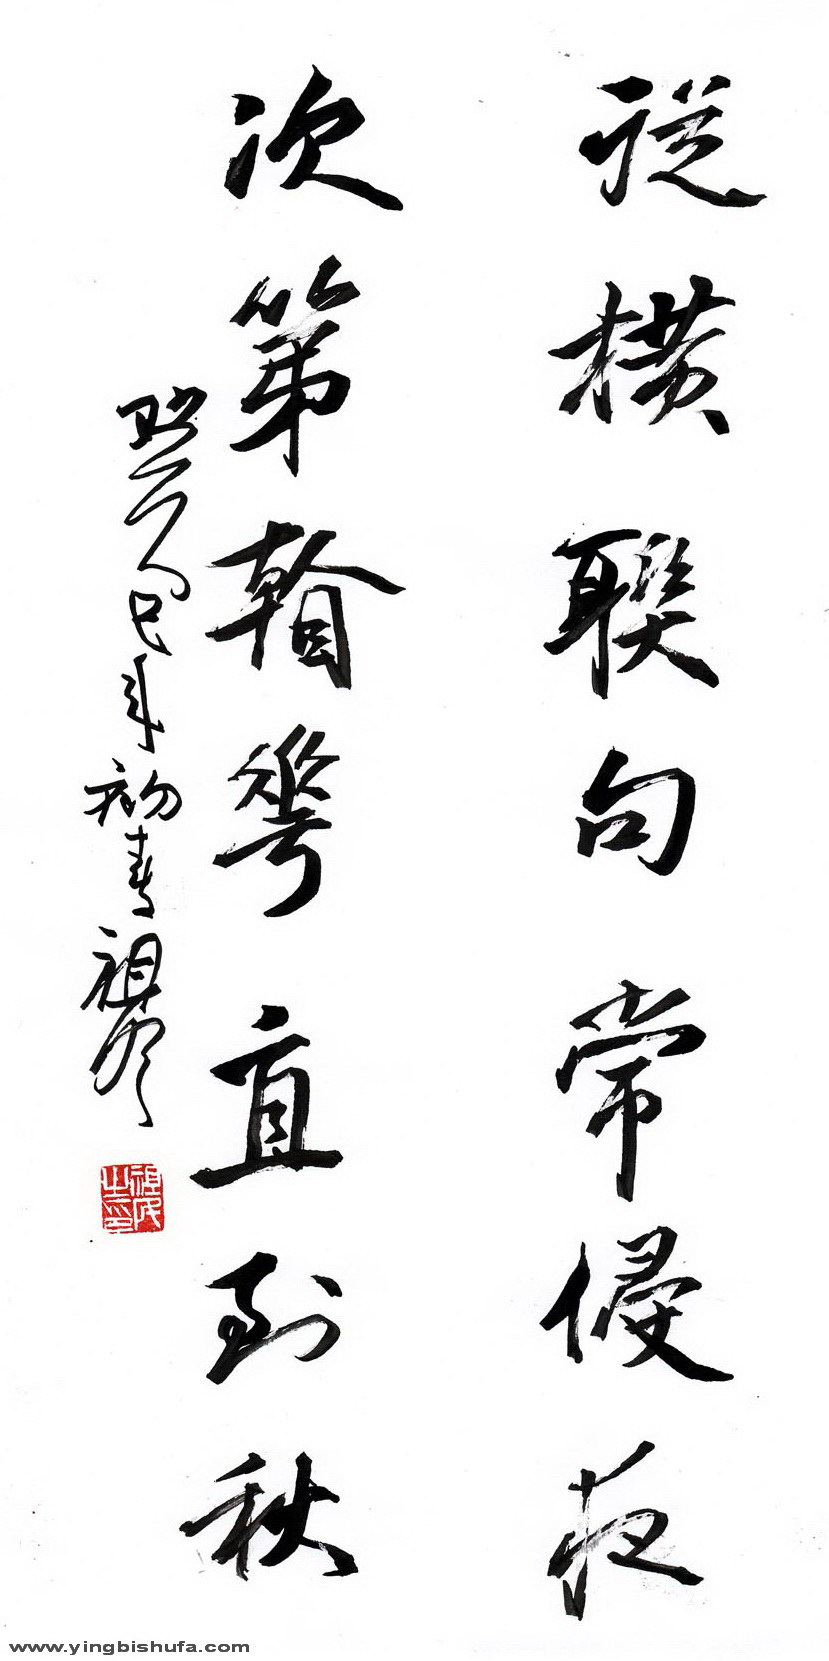 從橫聯句常侵夜
次第看華直到秋
巳年初春祖
www.yingbishufa.com